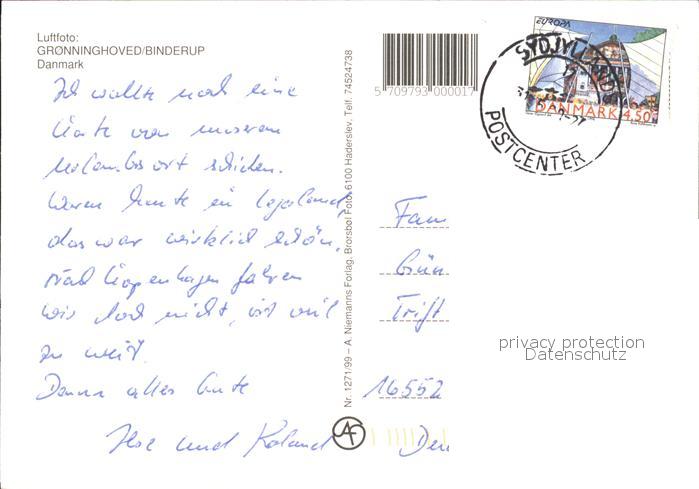 Luftfoto:
GRØNNINGHOVED/BINDERUP
Danmark
Ich wollte noch eine
Karte von unserem
Urlaubsort schicken.
Waren heute in Legoland,
das war wirklich schön.
Nach Kopenhagen fahren
wir doch nicht, ist viel
zu weit.
Dann alles Gute
Ilse und Roland
Nr. 1271/99 – A. Niemanns Forlag, Brorsbol Foto, 6100 Haderslev, Telf. 74524738
5 709793 000017
EUROPA
DANMARK 4.50
SYDJYLLANDS
POSTCENTER
Fam
Gün
Trift
16552
privacy protection
Datenschutz